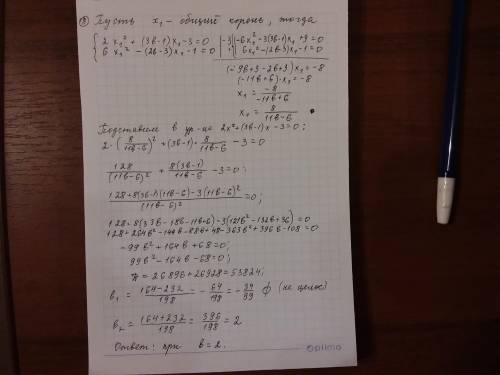 ③ Пусть x₁ – общий корень, тогда
{ 2x₁² + (3в-1)x₁ - 3 = 0 | -3 | { -6x₁² - 3(3в-1)x₁ + 9 = 0
6x₁² - (2в-3)x₁ - 1 = 0 | 6x₁² - (2в-3)x₁ - 1 = 0
(-9в+3-2в+3)x₁ = -8
(-11в+6)x₁ = -8
x₁ = -8/(-11в+6)
x₁ = 8/(11в-6)
Подставляем в ур-ие 2x²+(3в-1)x-3=0;
2·(8/(11в-6))² + (3в-1)·8/(11в-6) - 3 = 0
128/(11в-6)² + 8(3в-1)/(11в-6) - 3 = 0;
(128+8(3в-1)(11в-6)-3(11в-6)²)/(11в-6)² = 0;
128+8(33в²-18в-11в+6)-3(121в²-132в+36)=0
128+264в²-144в-88в+48-363в²+396в-108=0
-99в²+164в+68=0;
99в²-164в-68=0;
D=26896+26928=53824;
в₁ = (164-232)/198 = -64/198 = -39/99 ∅ (не целое)
в₂ = (164+232)/198 = 396/198 = 2
Ответ: при в=2.
optima